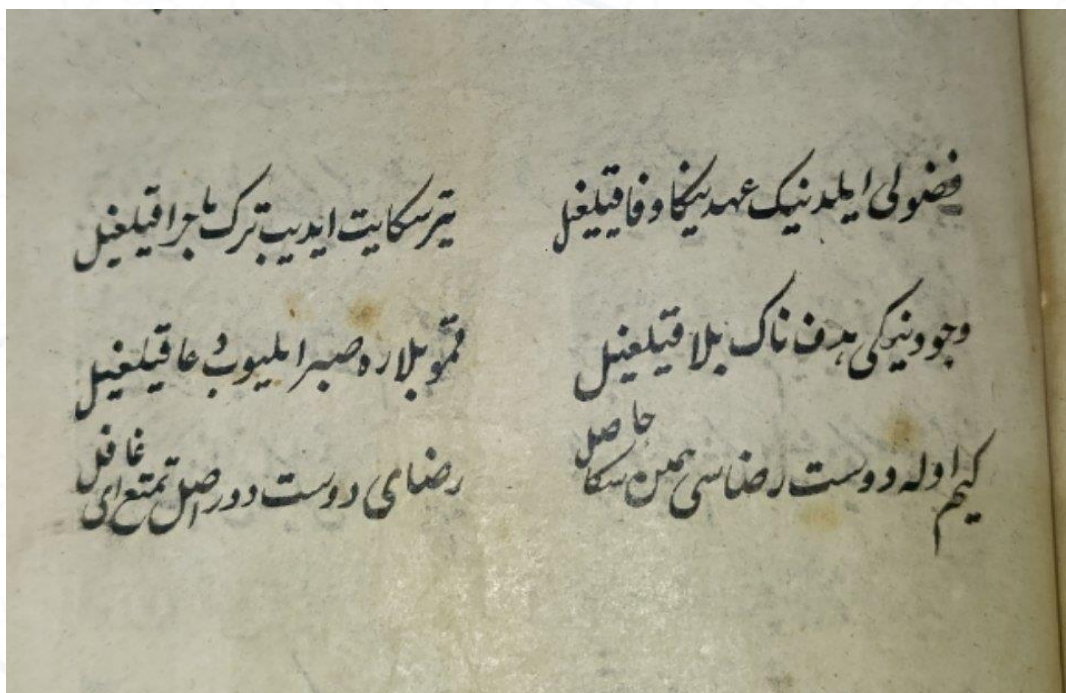 فضولی ایلدنیک عهدینکا وفا قیلیغیل یتر شکایت ایدیب ترک ماجرا قیلغیل
وجودینکی هدف ناک بلا قیلغیل قمو بلاره صبر ایلیوب دعا قیلغیل
کیم اوله دوست رضاسی همین سکا حاصل رضای دوست دور اصل تمتع ای غافل